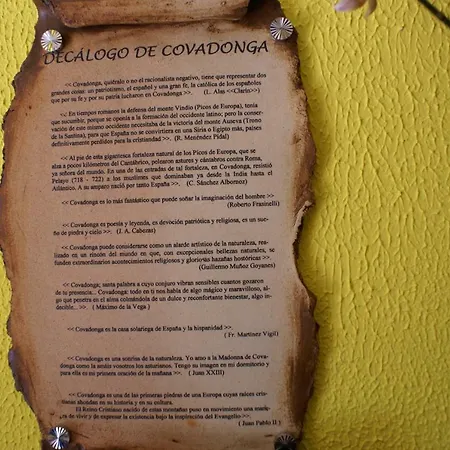 DECÁLOGO DE COVADONGA
<< Covadonga, quiéralo o no el racionalista negativo, tiene que representar dos
grandes cosas: un patriotismo, el español y una gran fe, la católica de los españoles
que por su fe y por su patria lucharon en Covadonga >>. (L. Alas <<Clarín>>)
<< En tiempos romanos la defensa del monte Vindio (Picos de Europa), tenía
que sucumbir, porque se oponía a la formación del occidente latino; pero la conser-
vación de este mismo occidente necesitaba de la victoria del monte Auseva (Trono
de la Santina), para que España no se convirtiera en una Siria o Egipto más, países
definitivamente perdidos para la cristiandad >>. (R. Menéndez Pidal)
<< Al pie de esta gigantesca fortaleza natural de los Picos de Europa, que se
alza a pocos kilómetros del Cantábrico, pelearon astures y cántabros contra Roma,
ya señores del mundo. En una de las entradas de tal fortaleza, en Covadonga, resistió
Pelayo (718 - 722) a los muslimes que dominaban ya desde la India hasta el
Atlántico. A su amparo nació por tanto España >>. (C. Sánchez Albornoz)
<< Covadonga es lo más fantástico que puede soñar la imaginación del hombre >>
(Roberto Frassinelli)
<< Covadonga es poesía y leyenda, es devoción patriótica y religiosa, es un sue-
ño de piedra y cielo >>. (J. A. Cabezas)
<< Covadonga puede considerarse como un alarde artístico de la naturaleza, rea-
lizado en un rincón del mundo en que, con excepcionales bellezas naturales, se
funden extraordinarios acontecimientos religiosos y gloriosas hazañas históricas >>.
(Guillermo Muñoz Goyanes)
<< Covadonga; santa palabra a cuyo conjuro vibran sensibles cuantos gozaron
de tu presencia... Covadonga: todo en ti nos habla de algo mágico y maravilloso, al-
go que penetra en el alma colmándola de un dulce y reconfortante bienestar, algo in-
decible... >>. ( Máximo de la Vega )
<< Covadonga es la casa solariega de España y la hispanidad >>.
( Fr. Martínez Vigil)
<< Covadonga es una sonrisa de la naturaleza. Yo amo a la Madonna de Cova-
donga como la amáis vosotros los asturianos. Tengo su imagen en mi dormitorio y
para ella es mi primera oración de la mañana >>. ( Juan XXIII)
<< Covadonga es una de las primeras piedras de una Europa cuyas raíces cris-
tianas ahondan en su historia y en su cultura.
El Reino Cristiano nacido de estas montañas puso en movimiento una mane-
ra de vivir y de expresar la existencia bajo la inspiración del Evangelio >>.
( Juan Pablo II )